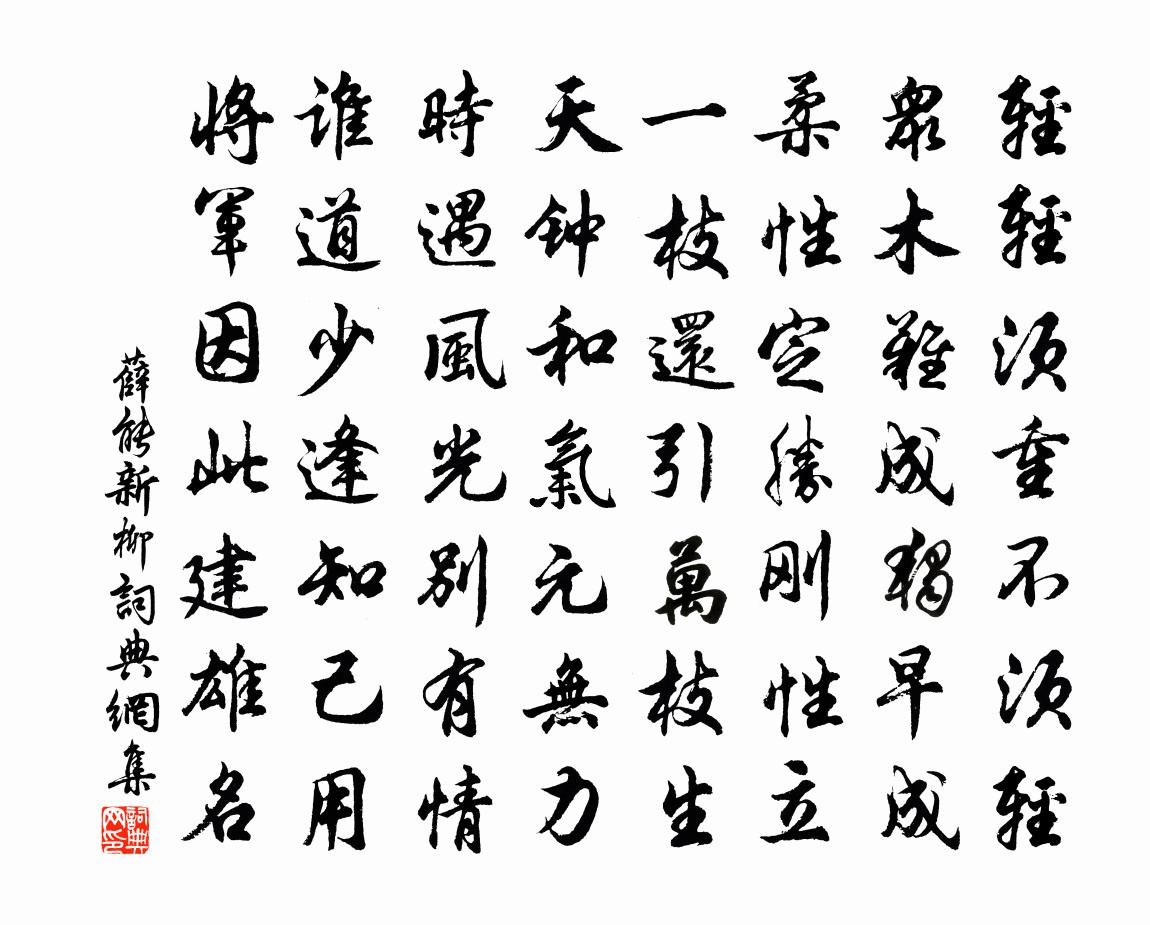 輕輕須重不須輕
衆木難成獨早成
柔性定勝剛性立
一枝還引萬枝生
天钟和氣元無力
時遇風光別有情
誰道少逢知己用
將軍因此建雄名
薛能新柳詞典網集
詞典網印